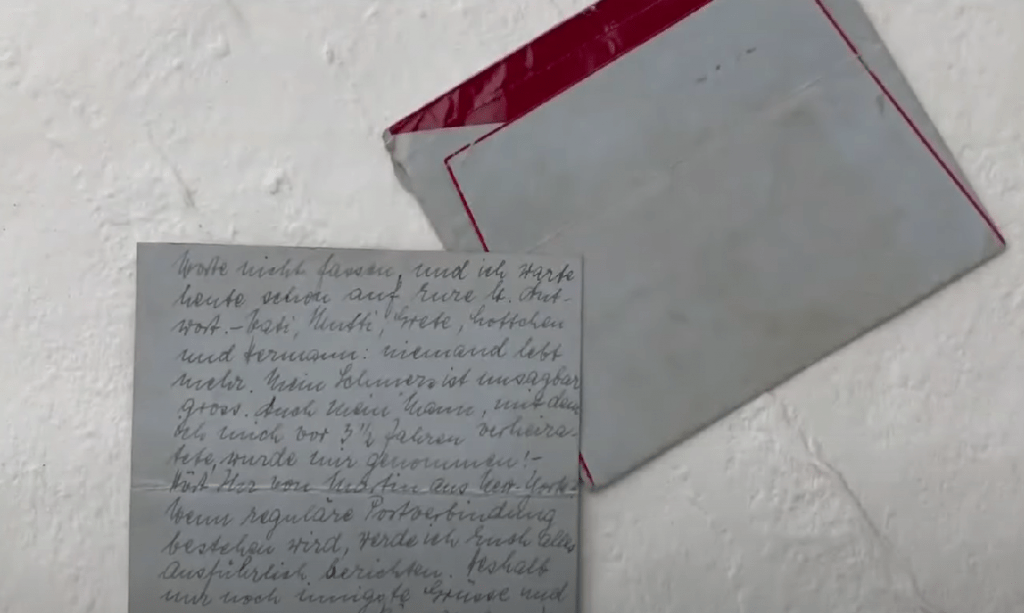 Worte nicht fassen, und ich warte
heute schon auf Eure l. Ant-
wort. - Vati, Mutti, Grete, Lottchen
und Hermann: niemand lebt
mehr. Mein Schmerz ist unsagbar
gross. Auch mein Mann, mit dem
ich mich vor 3 1/2 Jahren verheira-
tete, wurde mir genommen! -
Hört Ihr von Martin aus New-York?
Wenn reguläre Postverbindung
bestehen wird, werde ich Euch Alles
ausführlich berichten. Deshalb
nur noch innigste Grüsse und